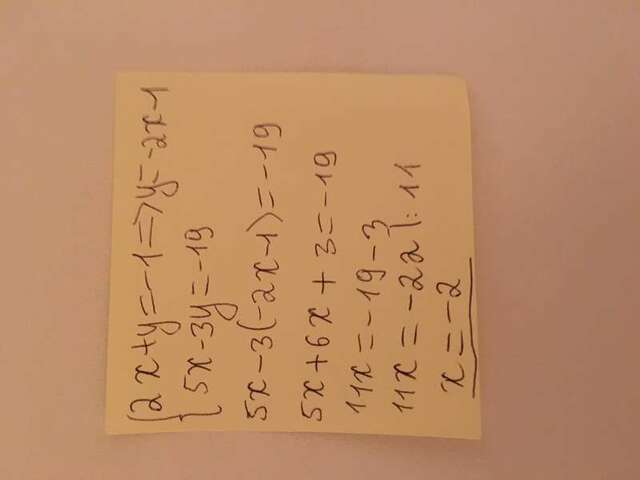 2x+y=-1=>y=-2x-1
5x-3y=-19
5x-3(-2x-1)=-19
5x+6x+3=-19
11x=-19-3
11x=-22 |:11
x=-2